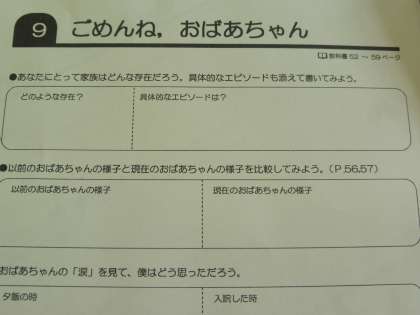 9 ごめんね，おばあちゃん
教科書 52 ～ 59ページ
●あなたにとって家族はどんな存在だろう。具体的なエピソードも添えて書いてみよう。
どのような存在？ 具体的なエピソードは？
●以前のおばあちゃんの様子と現在のおばあちゃんの様子を比較してみよう。（P.56,57）
以前のおばあちゃんの様子 現在のおばあちゃんの様子
おばあちゃんの「涙」を見て、僕はどう思っただろう。
夕飯の時 入院した時